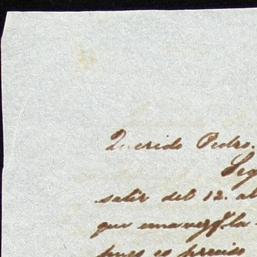 Querido Pedro.
Seg
salir del 12. al
que una vez fla
pues es preciso